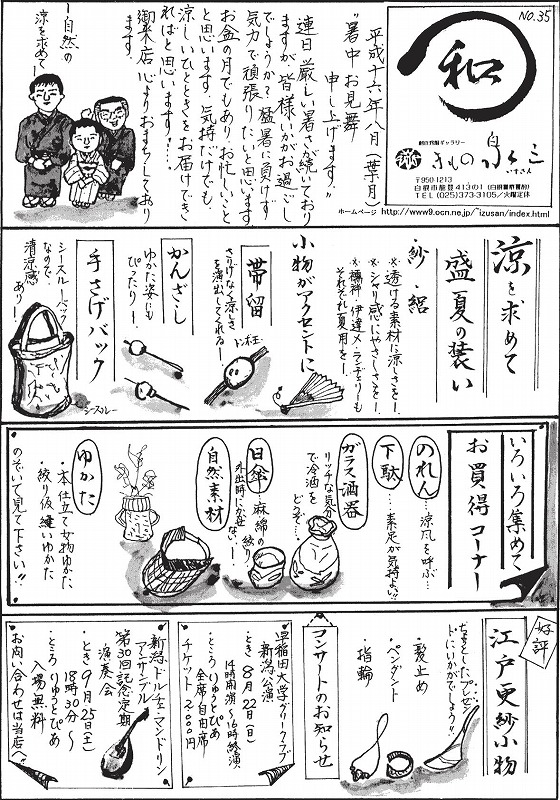 NO.35
和
創作呉服ギャラリー
きもの 泉三
いずさん
〒950-1213
白根市能登413の1(白根警察署前)
TEL(025)373-3105/火曜定休
ホームページ http://www9.ocn.ne.jp/~izusan/index.html
平成十六年八月(葉月)
"暑中お見舞
申し上げます。"
連日厳しい暑さが続いており
ますが皆様いかがお過ごし
でしょうか?猛暑に負けず
気力で頑張りたいと思います
お盆の月でもありお忙しいこと
と思います。気持だけでも、
涼しいひとときをお届けでき
ればと思います!
御来店心よりおまちしており
ます。
自然の
涼を求めて
涼を求めて
盛夏の装い
・紗・絽
※透ける素材に涼しさを!
※シャリ感にやさしさを!
※襦袢・伊達〆・ランジェリーも
それぞれ夏用を!
小物がアクセントに
帯留
さりげなく涼しさ
を演出してくれる!
トンボ玉
かんざし
ゆかた姿にも
ぴったり!
手さげバック
シースルーバック
なので、
清涼感
あり!
シースルー
いろいろ集めて
お買得コーナー
のれん
…涼風を呼ぶ…
下駄
…素足が気持よい!!
ガラス酒器
リッチな気分
で冷酒を
どうぞ…
日傘
麻、綿の絞り
外出時にかかせない!
自然素材
ゆかた
・本仕立て女物ゆかた
・絞り仮縫いゆかた
のぞいて見て下さい!!
好評
江戸更紗小物
ちょっとしたプレゼン
トにいかがでしょう!!
・髪止め
・ペンダント
・指輪
コンサートのお知らせ
早稲田大学グリークラブ
新潟公演
・とき 8月22日(日)
14時開演〜16時終演
・ところ りゅうとぴあ
全席自由席
チケット 2000円
新潟ドルチェ・マンドリン
アンサンブル
第30回記念定期
演奏会
・とき 9月25日(土)
18時30分〜
・ところ りゅうとぴあ
入場無料
お問い合わせは当店へ!!